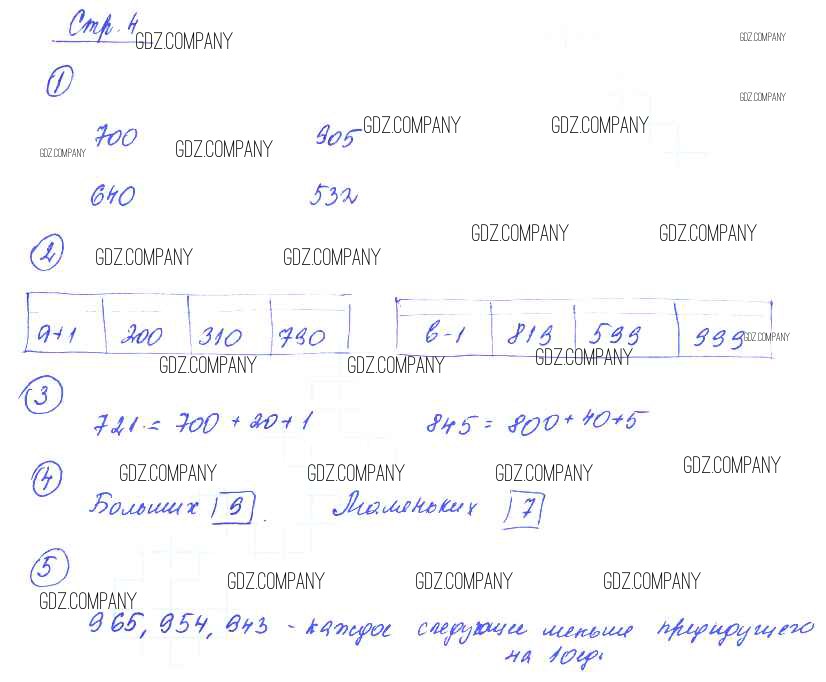 Стр. 4
GDZ.COMPANY
GDZ.COMPANY
1
GDZ.COMPANY
700 905
GDZ.COMPANY GDZ.COMPANY
GDZ.COMPANY GDZ.COMPANY
640 532
GDZ.COMPANY GDZ.COMPANY
2 GDZ.COMPANY GDZ.COMPANY
а+1 200 310 790 в-1 819 599 999
GDZ.COMPANY
GDZ.COMPANY GDZ.COMPANY GDZ.COMPANY
3
721 = 700 + 20+1 845 = 800+40+5
4 GDZ.COMPANY GDZ.COMPANY GDZ.COMPANY GDZ.COMPANY
Больших 9. Маленьких 7
5
GDZ.COMPANY GDZ.COMPANY GDZ.COMPANY
GDZ.COMPANY
965, 954, 943 - каждое следующее меньше предидущего
на 10ед.